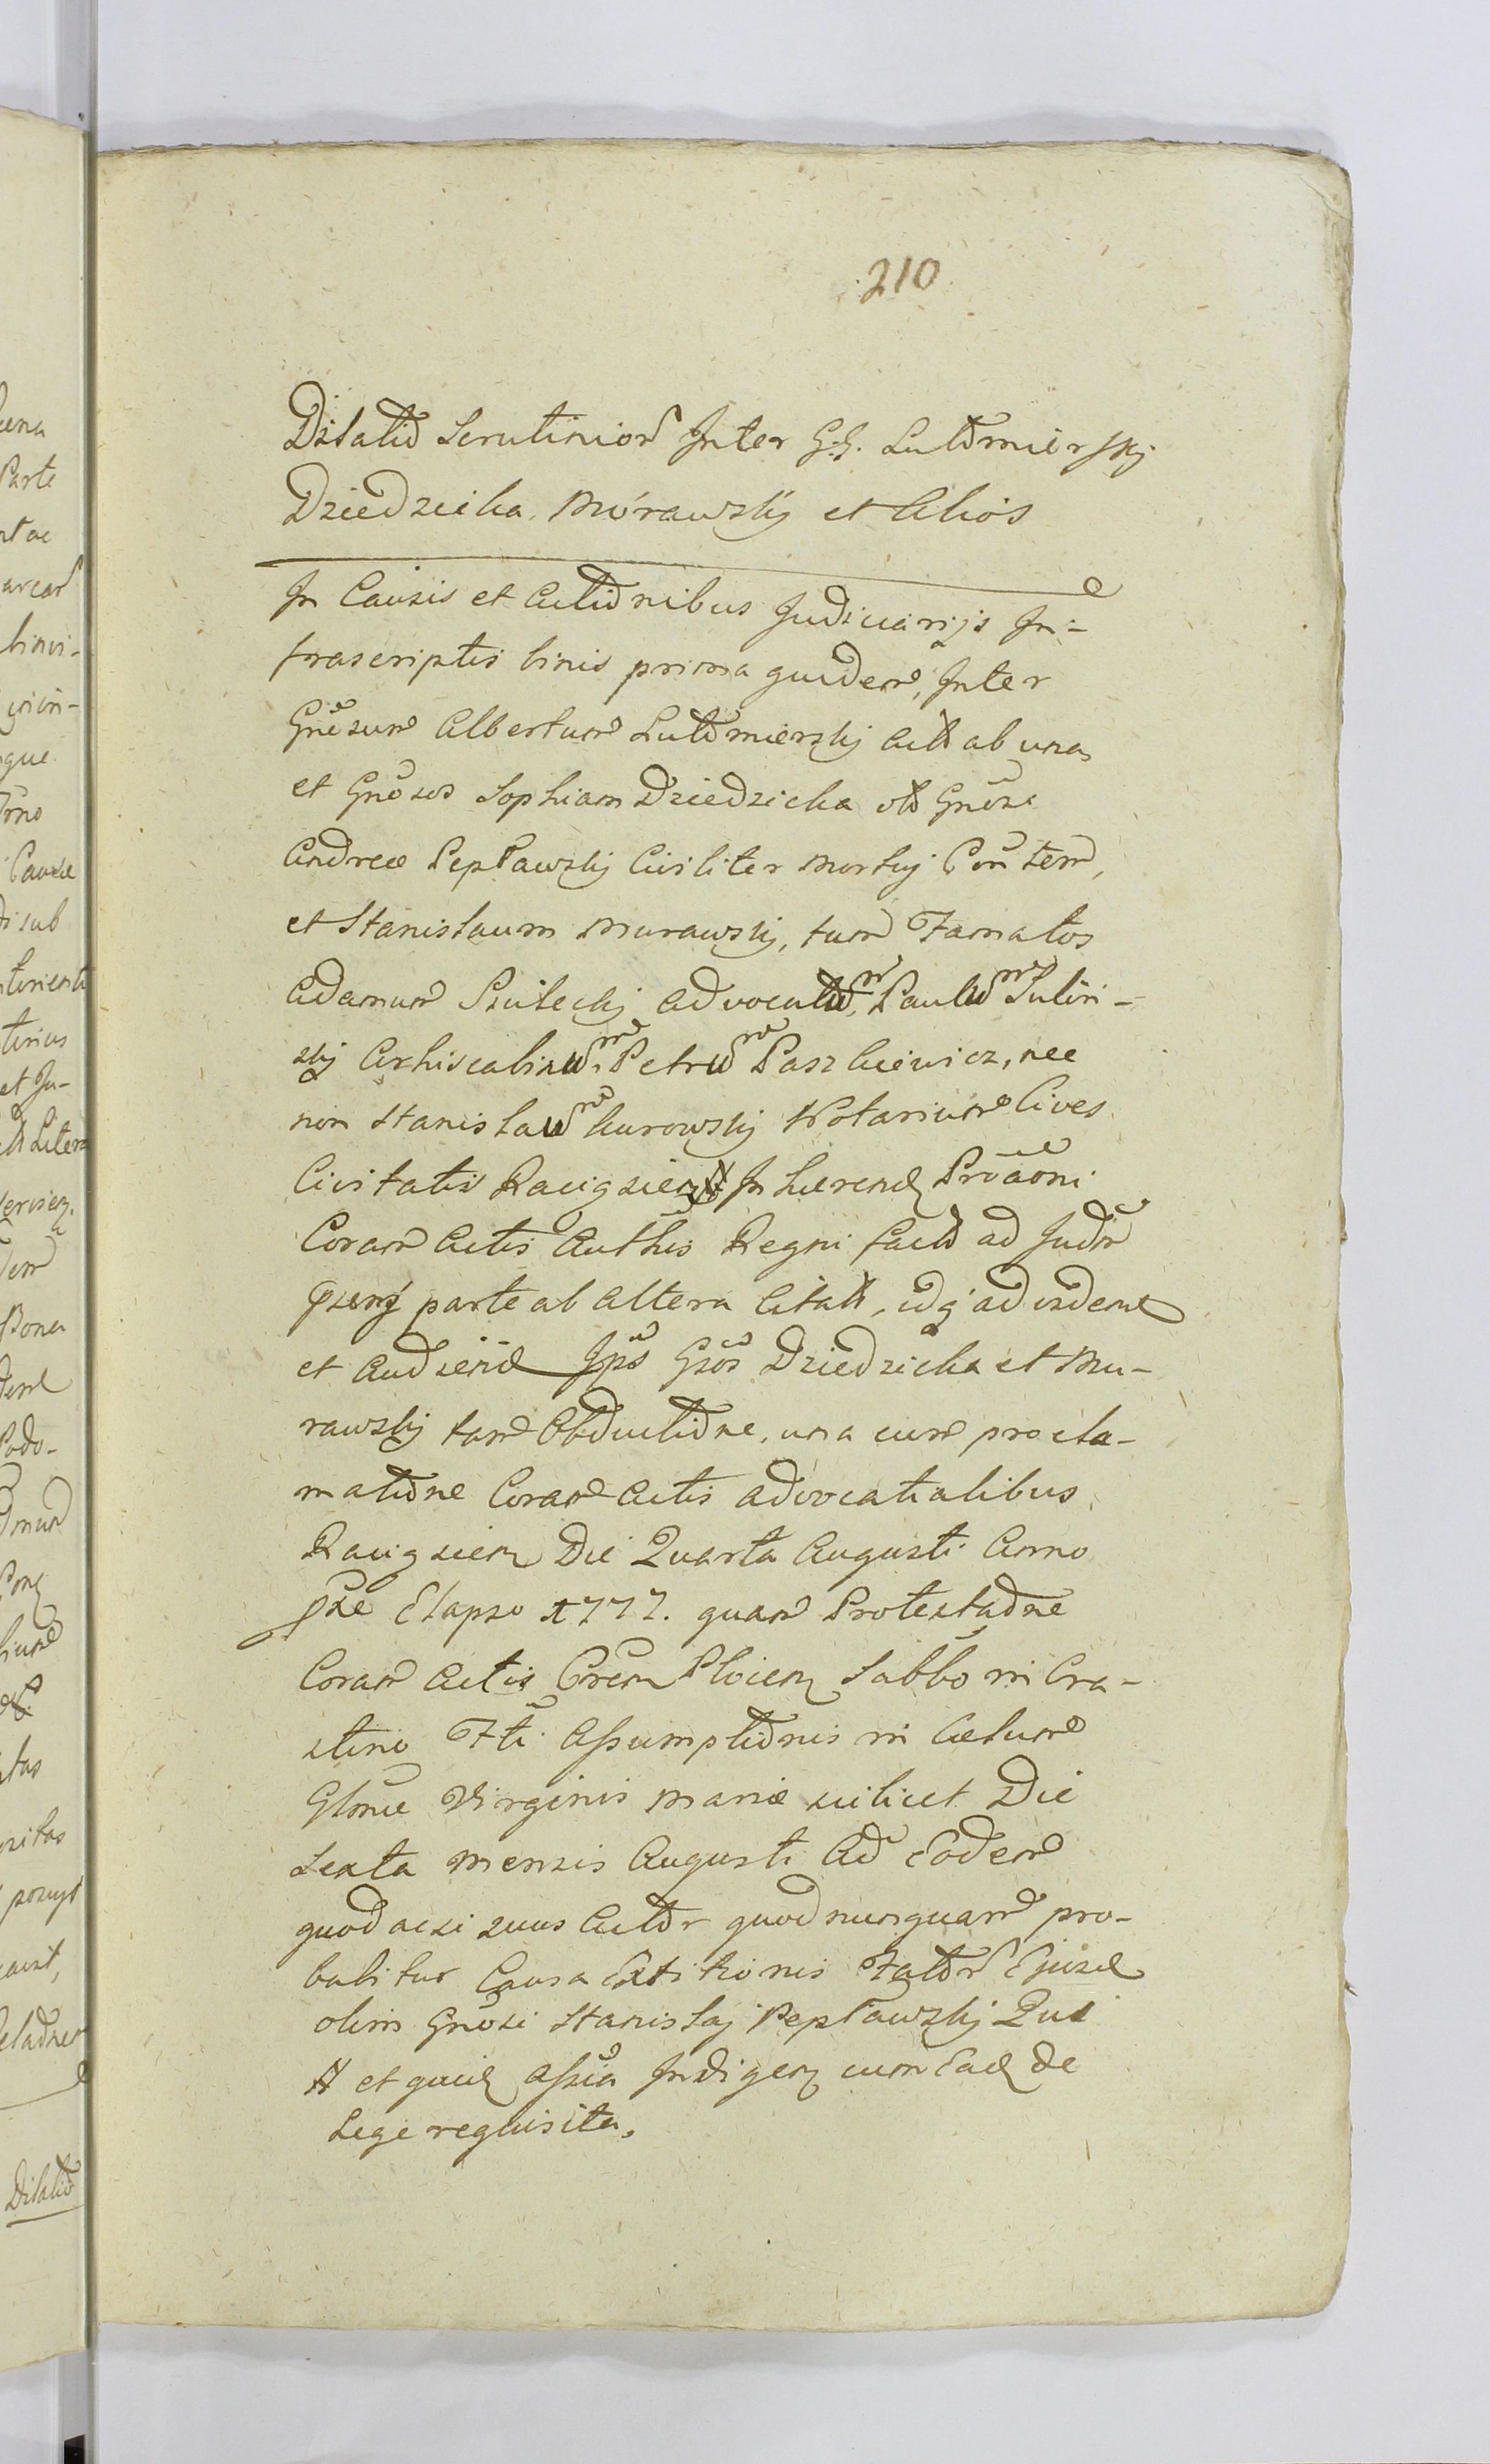 210
Dilatio Scrutinior Inter G.G. Lutomierskj
Dziedzicka, Murawskj et Alios
In Causis et Actionibus Judiciarijs In-
frascriptis binis prima quidem, Inter
Gnosum Albertum Lutomierskj Act ab una
et Gnosos Sophiam Dziedzicka olt Gnosi
Andreæ Pepławskj Civiliter Mortuj Contem,
et Stanislaum Murawskj, tum Famatos
Adamum Siuteckj Advocatum, Paulum Sulin-
skj Archiscabinum, Petrum Paszkiewicz, nec
non Stanislaum Kurowskj Notarium Cives
Civitatis Raciązien # In hærend Prōāōni
Coram Actis Authis Regni fact ad Judm
psens parte ab altera Citatt, idq ad vidend
et audiend Ipōs Gsōs Dziedzicka et Mu-
rawskj tam Obductione, una cum procla-
matione Coram Actis Advocatialibus
Raciązien Die Quarta Augusti Anno
pxe Elapso 1777. quam Protestaōne
Coram Actis Cren Plocien Sabbo in Cra-
stino Fti Assumptionis in Cælum
Glosæ Virginis Mariæ scilicet Die
Sexta Mensis Augusti Ao Eodem
quod acsi suus Actor quod nunquam pro-
babitur Causa Extitionis Fator Ejusd
olim Gnosi Stanislaj Pepławskj Qui
# et quid Assia Indigen cum Ead de
Lege requisita.